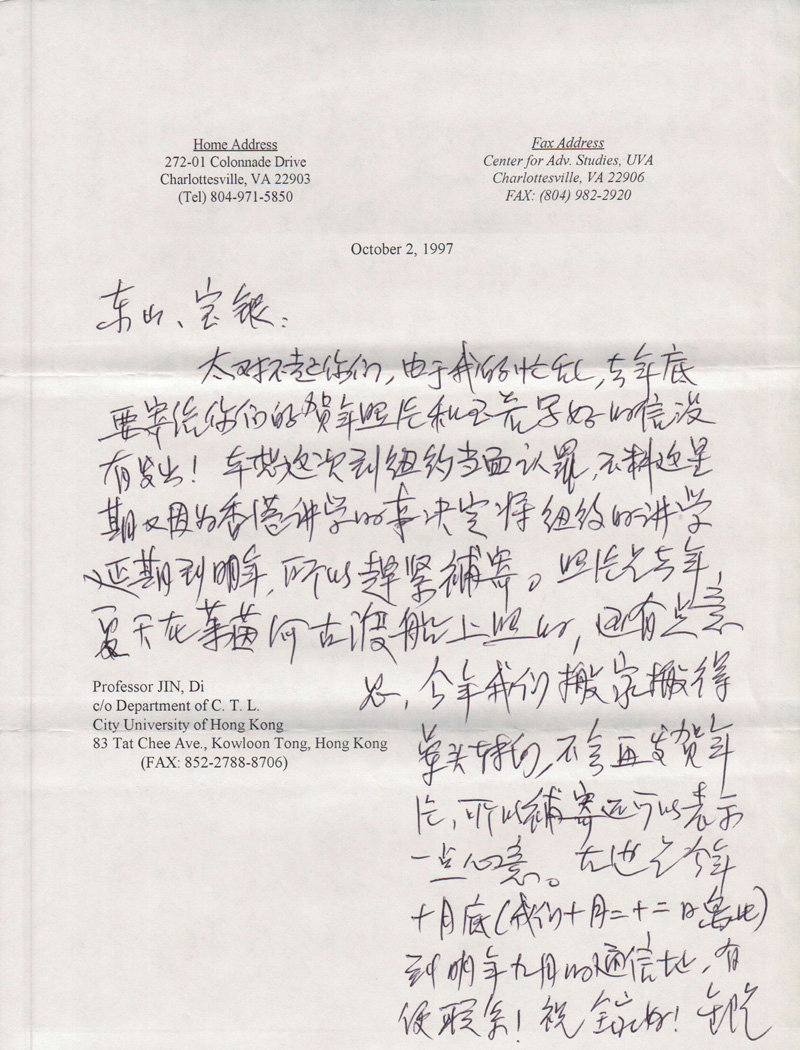 Home Address
272-01 Colonnade Drive
Charlottesville, VA 22903
(Tel) 804-971-5850
Fax Address
Center for Adv. Studies, UVA
Charlottesville, VA 22906
FAX: (804) 982-2920
October 2, 1997
东山、宝银:
太对不起你们,由于我的忙乱,去年底
要寄给你们的贺年照片和写好的信没
有发出!本想这次到纽约当面认罪,不料这星
期又因为香港讲学的事决定将纽约的讲学
延期到明年,所以趕紧補寄。照片是去年
夏天在莱茵河古渡船上照的,还有点意
思,今年我们搬家搬得
晕头转向,不会再发贺年
片,所以補寄还可以表示
一点心意。左边是今年
十月底(我们十月二十二日离此)
到明年九月的通信地址,有
便联系!祝全家好!
Professor JIN, Di
c/o Department of C. T. L.
City University of Hong Kong
83 Tat Chee Ave., Kowloon Tong, Hong Kong
(FAX: 852-2788-8706)